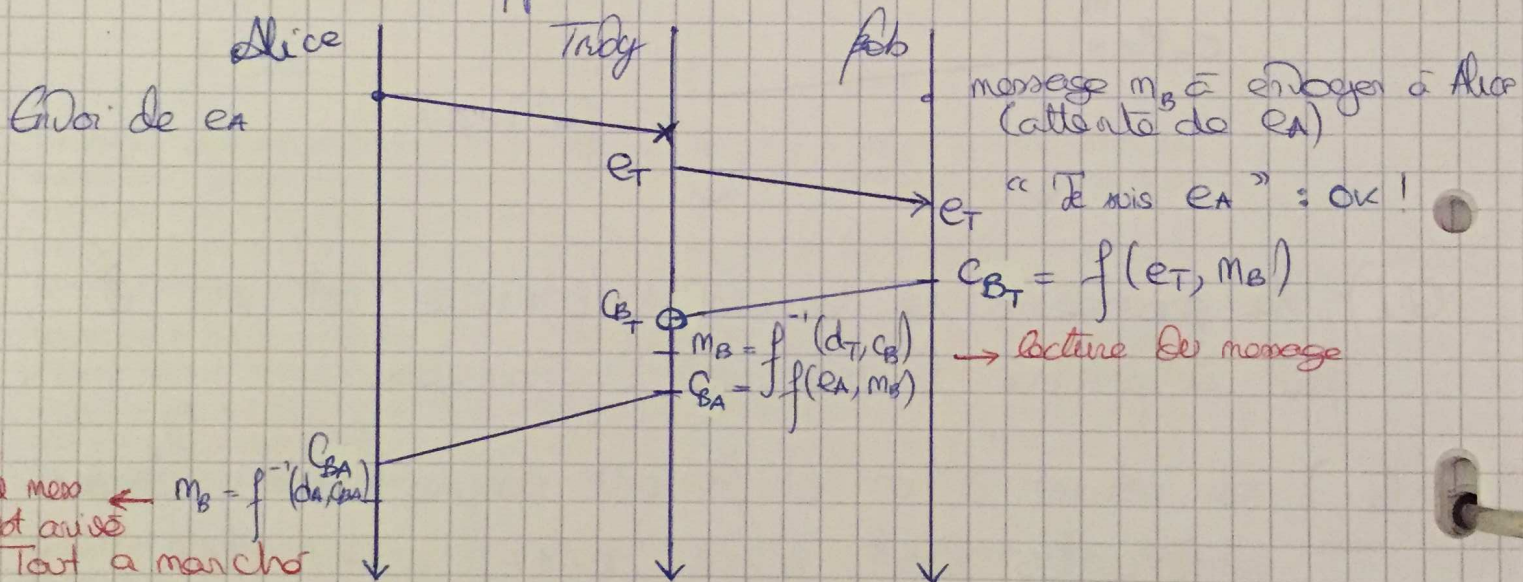 Alice Trudy Bob
Envoi de eA
message mB à envoyer à Alice
(attente de eA)
eT
eT "Je suis eA" : OK !
CBT = f(eT, mB)
CBT
mB = f⁻¹(dT, CB) → Lecture du message
CBA = f(eA, mB)
CBA
mess ← mB = f⁻¹(dA, CBA)
arrivé
Tout a marché